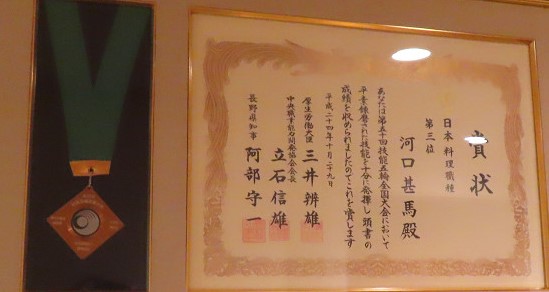 賞状
日本料理職種
第三位
河口甚馬殿
あなたは第五十回技能五輪全国大会において
平素錬磨された技能を十分に発揮し頭書の
成績を収められましたのでこれを賞します
平成二十四年十月二十九日
厚生労働大臣 三井辨雄
中央職業能力開発協会会長 立石信雄
長野県知事 阿部守一